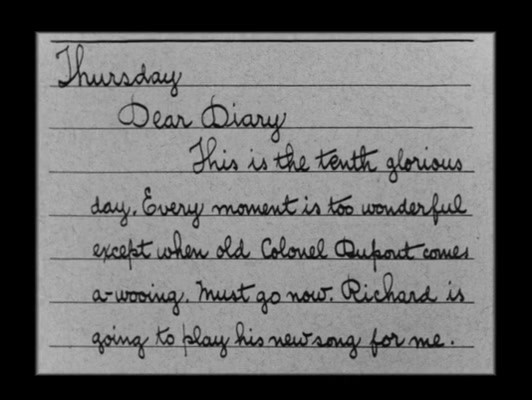 Thursday
Dear Diary
This is the tenth glorious
day. Every moment is too wonderful
except when old Colonel Dupont comes
a-wooing. Must go now. Richard is
going to play his new song for me.